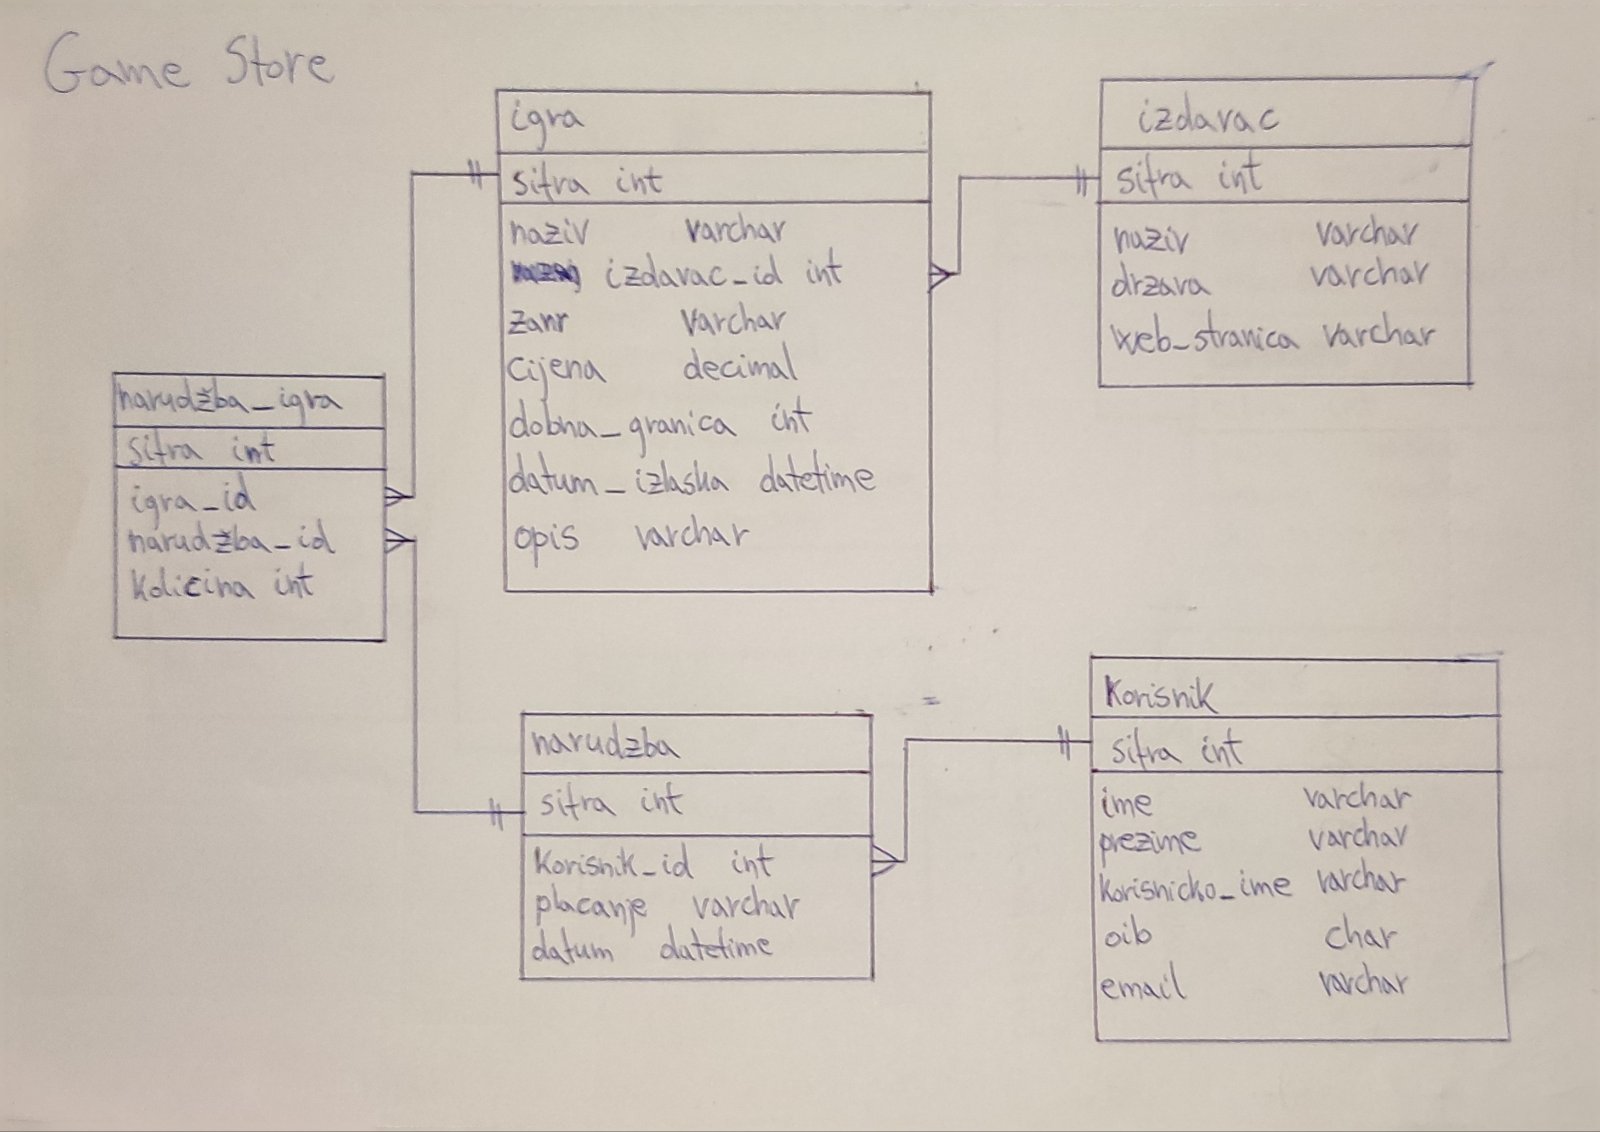 Game Store
igra
sifra int
naziv varchar
izdavac_id int
zanr varchar
cijena decimal
dobna_granica int
datum_izlaska datetime
opis varchar
izdavac
sifra int
naziv varchar
drzava varchar
web_stranica varchar
narudžba_igra
sifra int
igra_id
narudžba_id
kolicina int
narudzba
sifra int
korisnik_id int
placanje varchar
datum datetime
korisnik
sifra int
ime varchar
prezime varchar
korisnicko_ime varchar
oib char
email varchar